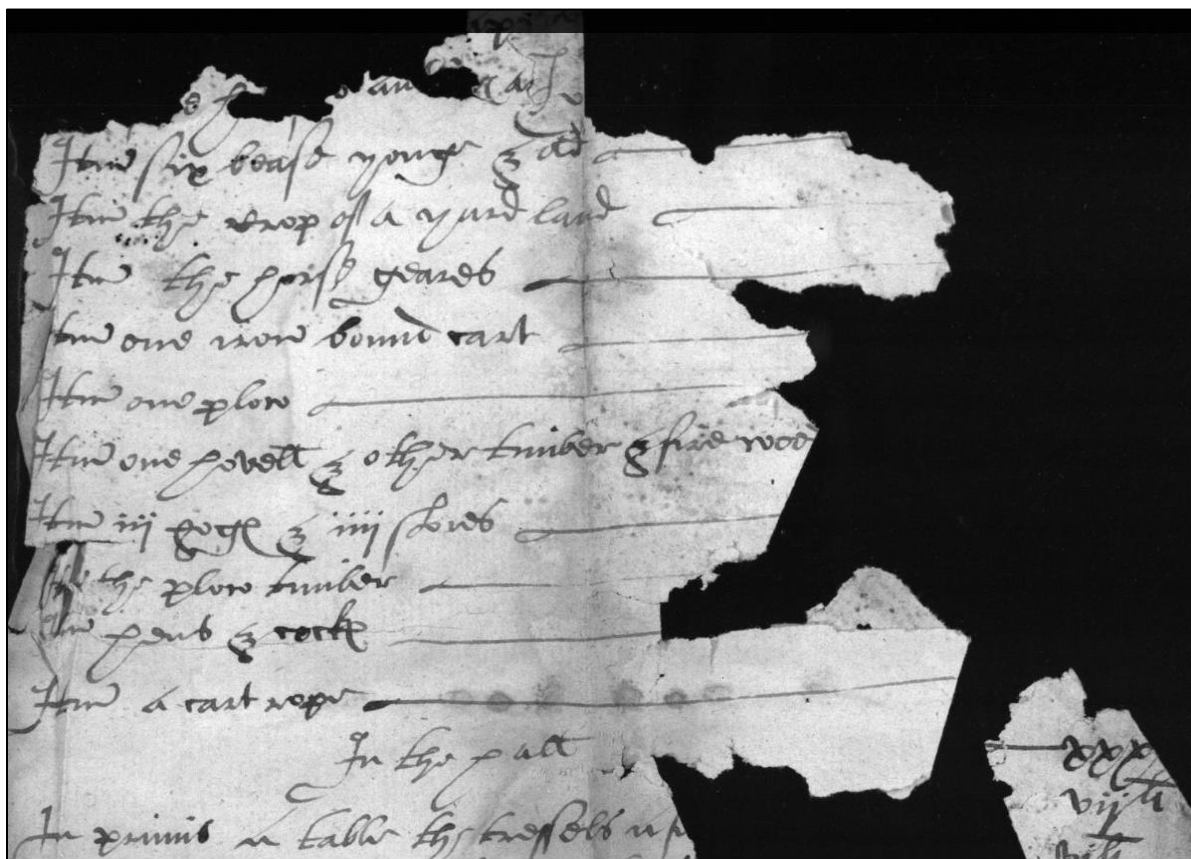 Itm six beasse yonge & old
Itm the crop of a yard land
Itm the horse geares
Itm one iron bound cart
Itm one plow
Itm one hovell & other timber & fire woo
Itm iij hoges & iiij stores
the plow timber
Itm hens & cocks
Itm a cart rope
In the hall
In primis a table the tressels
xxx
vij li